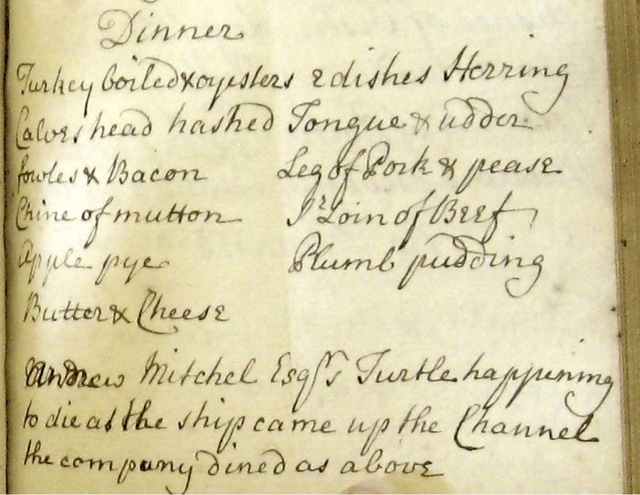 Dinner
Turkey boiled & oyesters 2 dishes Herring
Calves head hashed Tongue & udder
fowles & Bacon Leg of Pork & pease
Chine of mutton Sr Loin of Beef
Apple pye Plumb pudding
Butter & Cheese
Andrew Mitchel Esqrs Turtle happening
to die as the ship came up the Channel
the company dined as above